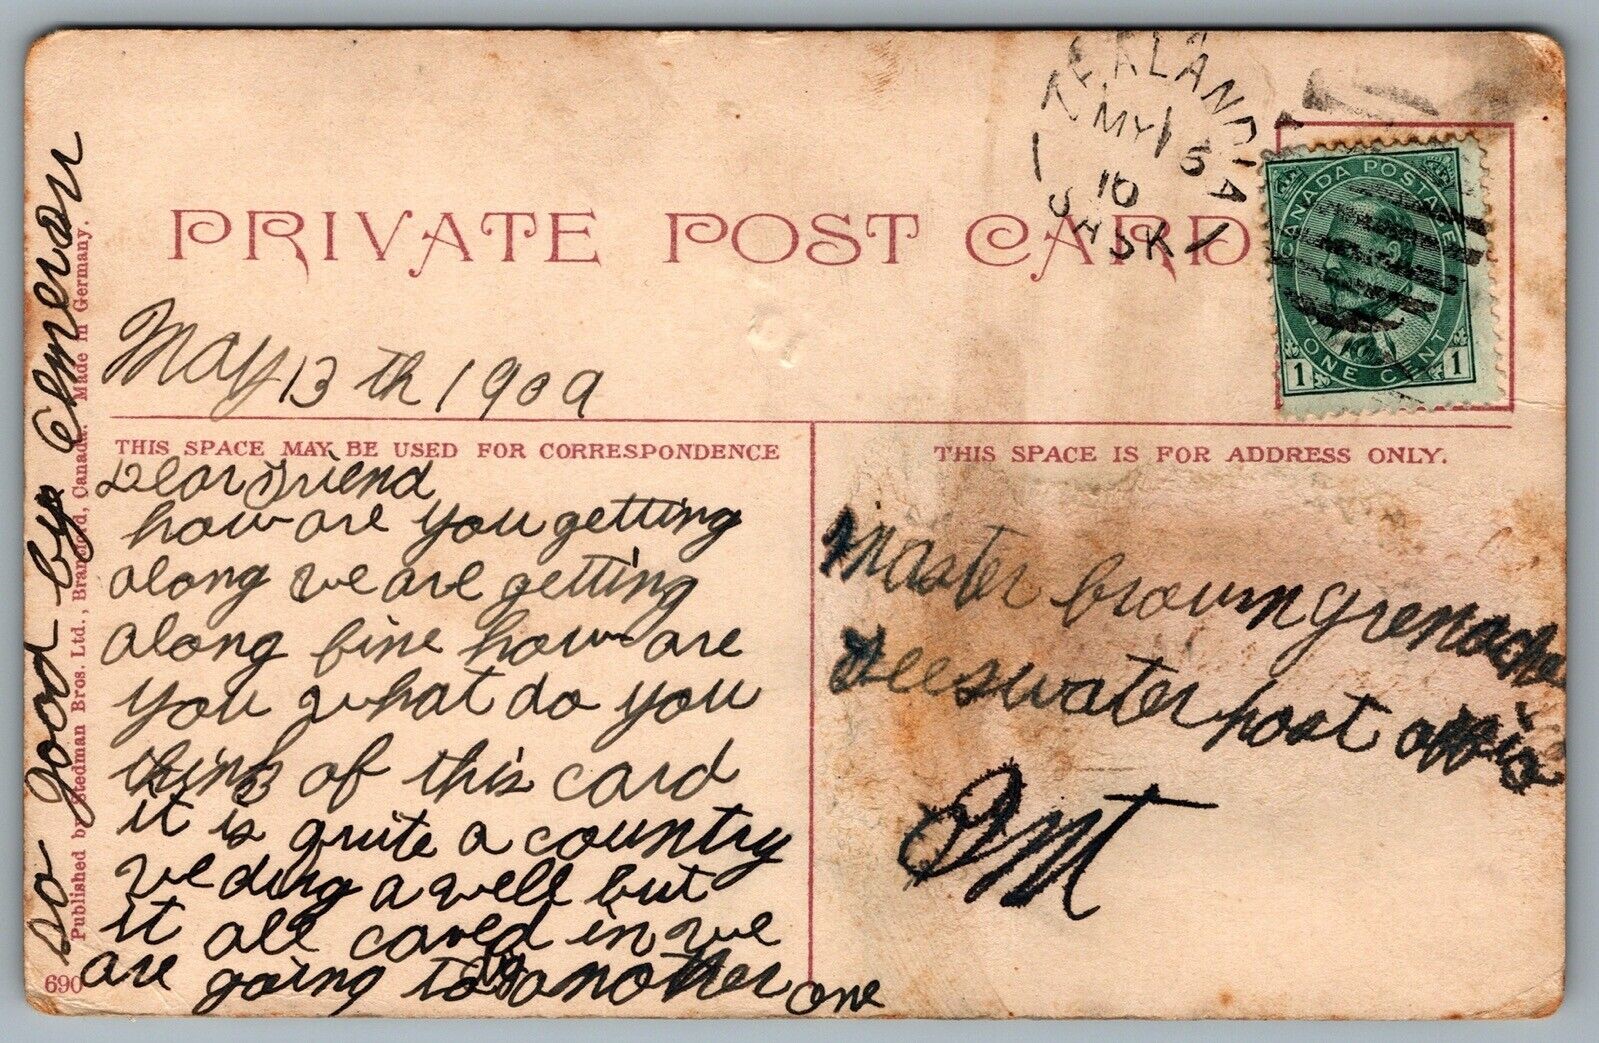 PRIVATE POST CARD
ZEALANDIA
MY 15
10
SASK
CANADA POSTAGE
ONE CENT
1 1
May 13th 1909
THIS SPACE MAY BE USED FOR CORRESPONDENCE
THIS SPACE IS FOR ADDRESS ONLY.
Dear Friend
how are you getting
along we are getting
along fine how are
you what do you
think of this card
it is quite a country
we dug a well but
it all caved in we
are going to another one
so good by
Master brown
Teeswater post office
Ont
Published by Stedman Bros. Ltd., Brantford, Canada. Made in Germany.
690